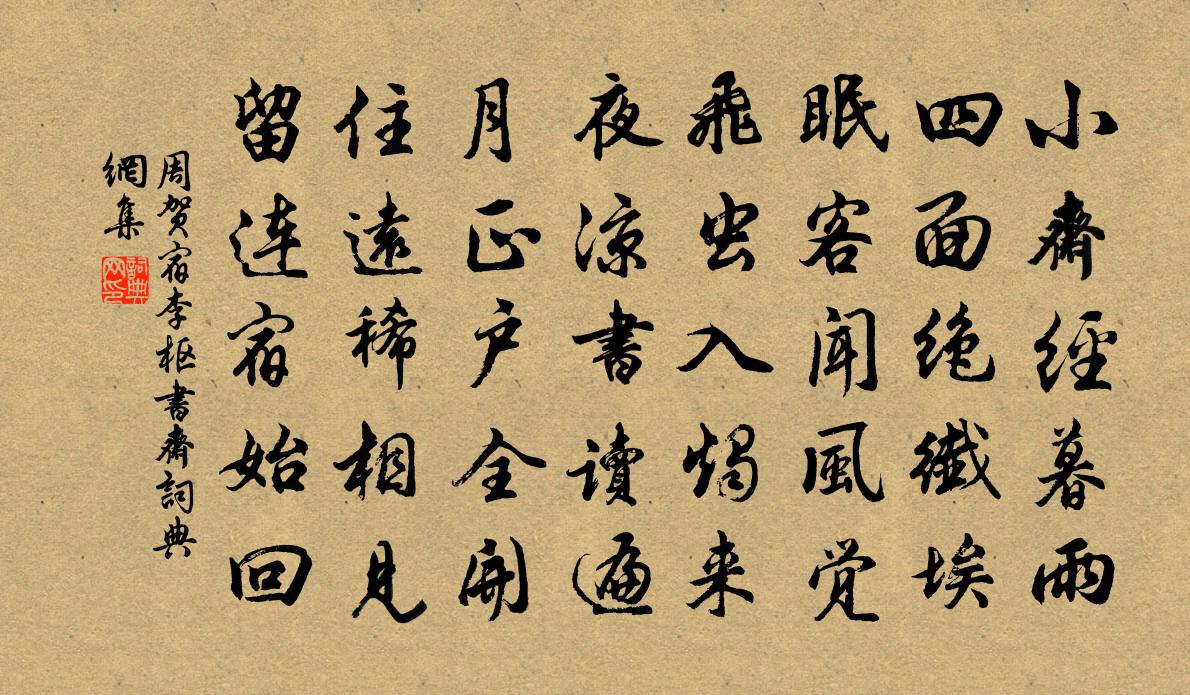 小齋經暮雨
四面绝纖埃
眠客聞風覺
飛虫入燭来
夜涼書讀遍
月正户全開
住遠稀相見
留连宿始回
周贺宿李枢書齋詞典
網集
詞典
网印